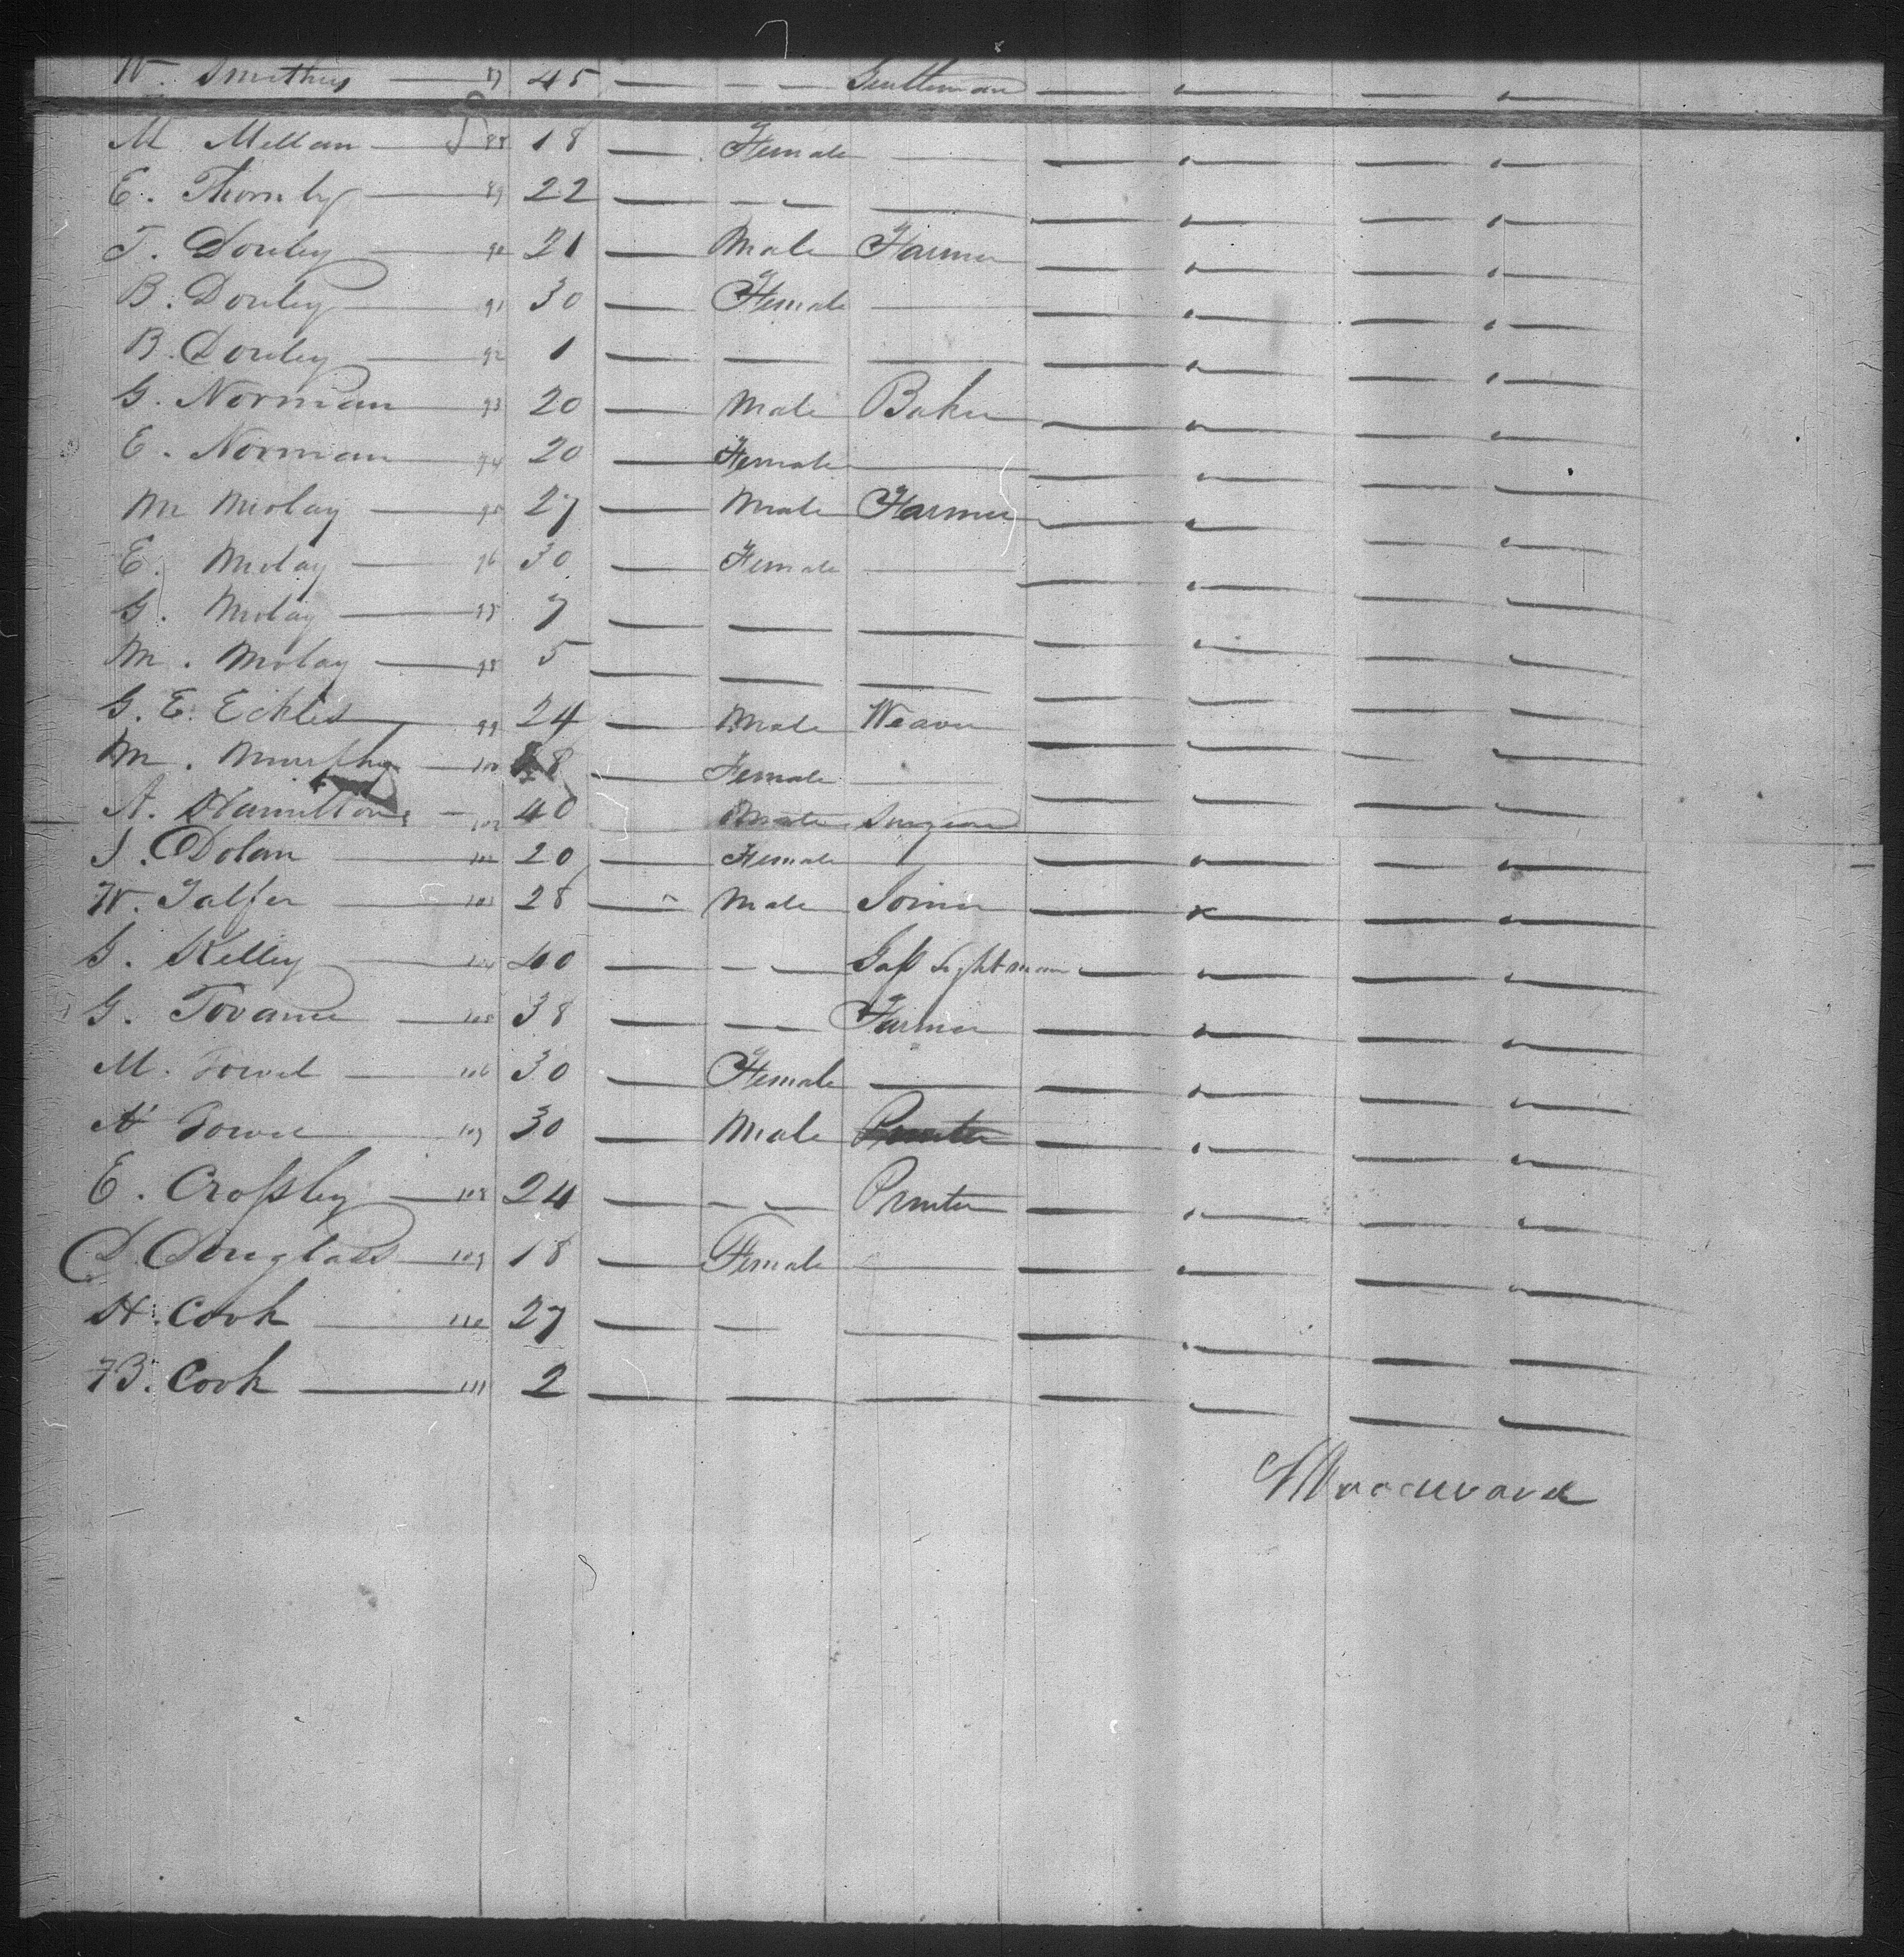 W. Smithers — 87 45 — — — Gentleman
M Mellan — 88 18 — Female —
E. Thornby — 89 22 — — — —
T. Douley — 90 21 — Male Farmer
B. Douley — 91 30 — Female —
B. Douley — 92 1 — — —
G. Norman — 93 20 — Male Baker
E. Norman — 94 20 — Female —
M Molay — 95 27 — Male Farmer
E. Molay — 96 30 — Female —
G. Molay — 97 7 — — —
M. Molay — 98 5 — — —
G. E. Eckles — 99 24 — Male Weaver
M. Murphy — 100 — Female —
A. Hamilton — 40 Male Surgeon
J. Dolan — 102 20 — Female —
W. Talfer — 103 28 — Male Joiner
G. Kelley — 104 40 — — — Gass Lightman
G. Tovance — 105 38 — — — Farmer
M. Towel — 106 30 — Female —
N Towel — 107 30 — Male Printer
E. Crossley — 108 24 — — — Printer
D Douglass — 109 18 — Female —
H. Cook — 110 27 — — —
B. Cook — 111 2 — — —
Woodward